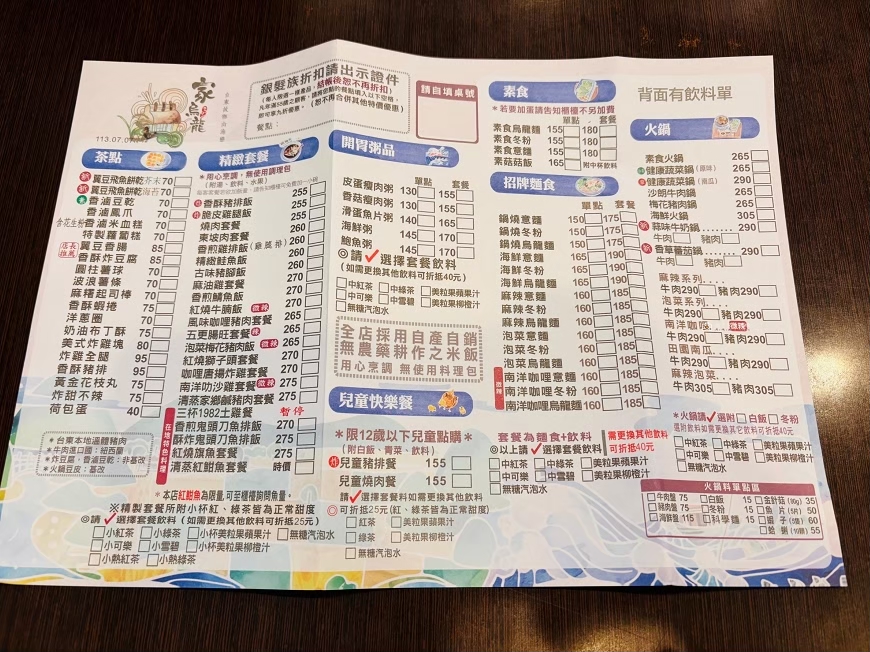 家烏龍
113.07.0
銀髮族折扣請出示證件
結帳後恕不再折扣
餐點：
請自填桌號
茶點
翼豆飛魚餅乾芥末 70
翼豆飛魚餅乾海苔 70
香滷豆乾 70
香滷鳳爪 70
含花生粉 香滷米血糕 70
特製蘿蔔糕 70
店長推薦 翼豆香腸 85
香酥炸豆腐 85
圓柱薯球 70
波浪薯條 70
麻糬起司棒 70
香酥蝦捲 70
洋蔥圈 70
奶油布丁酥 75
美式炸雞塊 80
炸雞全腿 95
香酥豬排 95
黃金花枝丸 75
炸甜不辣 75
荷包蛋 40
*台東本地溫體豬肉
*牛肉進口國：紐西蘭
*炸豆腐，香滷豆乾：非基改
*火鍋豆皮：基改
精緻套餐
*用心烹調，無使用調理包
(附湯、飲料、水果)
香酥豬排飯 255
脆皮雞腿飯 255
燒肉套餐
東坡肉套餐
香煎雞排飯(雞腿排)
精緻鮭魚飯
古味豬腳飯
麻油雞套餐
香煎鯖魚飯
紅燒牛腩飯 微辣 270
風味咖哩豬肉套餐 265
五更腸旺套餐 辣 265
泡菜梅花豬肉飯 辣 265
紅燒獅子頭套餐 270
咖哩唐揚炸雞套餐 270
南洋叻沙雞套餐 微辣 275
清蒸家鄉鹹豬肉套餐 275
三杯1982土雞餐 暫停
在地特色料理
香煎鬼頭刀魚排飯 275
酥炸鬼頭刀魚排飯 275
紅燒旗魚套餐 275
清蒸紅魽魚套餐 時價
*本店紅魽魚為限量，可至櫃檯詢問魚量。
※精製套餐所附小杯紅、綠茶皆為正常甜度
◎請✓選擇套餐飲料 (如需更換其他飲料可折抵25元)
□小紅茶 □小綠茶 □小杯美粒果蘋果汁 □無糖汽泡水
□小可樂 □小雪碧 □小杯美粒果柳橙汁
□小熱紅茶 □小熱綠茶
開胃粥品
單點 套餐
皮蛋瘦肉粥 130 155
香菇瘦肉粥 130 155
滑蛋魚片粥 140 165
海鮮粥 145 170
鮑魚粥 145 170
◎請✓選擇套餐飲料
(如需更換其他飲料可折抵40元)
□中紅茶 □中綠茶 □美粒果蘋果汁
□中可樂 □中雪碧 □美粒果柳橙汁
□無糖汽泡水
全店採用自產自銷
無農藥耕作之米飯
用心烹調 無使用料理包
兒童快樂餐
*限12歲以下兒童點購*
(附白飯、青菜、飲料)
兒童豬排餐 155
兒童燒肉餐 155
請✓選擇套餐飲料如需更換其他飲料
◎可折抵25元(紅、綠茶皆為正常甜度)
□紅茶 □美粒果蘋果汁
□綠茶 □美粒果柳橙汁
□無糖汽泡水
素食
*若要加蛋請告知櫃檯不另加費
單點 套餐
素食烏龍麵 155 180
素食冬粉 155 180
素食意麵 155 180
素菇菇飯 165 附中杯飲料
招牌麵食
單點 套餐
鍋燒意麵 150 175
鍋燒冬粉 150 175
鍋燒烏龍麵 150 175
海鮮意麵 160 185
海鮮冬粉 160 185
海鮮烏龍麵 160 185
麻辣意麵 160 185
麻辣冬粉 160 185
麻辣烏龍麵 160 185
泡菜意麵 160 185
泡菜冬粉 160 185
泡菜烏龍麵 160 185
微辣
南洋咖哩意麵 160 185
南洋咖哩冬粉 160 185
南洋咖哩烏龍麵 160 185
套餐為麵食+飲料
◎以上請✓選擇套餐飲料
需更換其他飲料可折抵40元
□中紅茶 □中綠茶 □美粒果蘋果汁
□中可樂 □中雪碧 □美粒果柳橙汁
□無糖汽泡水
背面有飲料單
火鍋
素食火鍋 265
健康蔬菜鍋(原味) 265
健康蔬菜鍋(南瓜) 290
沙朗牛肉鍋 265
梅花豬肉鍋 265
海鮮火鍋 290
蒜味牛奶鍋 290
牛肉□ 豬肉□
香草蕃茄鍋 290
牛肉□ 豬肉□
麻辣系列....
牛肉290□ 豬肉290□
泡菜系列....
牛肉290□ 豬肉290□
南洋咖哩... 微辣
牛肉290□ 豬肉290□
田園南瓜....
牛肉290□ 豬肉290□
麻辣泡菜....
牛肉305□ 豬肉305□
*火鍋請✓選附□白飯□冬粉
選附飲料如需更換其它飲料可折抵40元
□中紅茶 □中綠茶 □美粒果蘋果汁
□中可樂 □中雪碧 □美粒果柳橙汁
□無糖汽泡水
火鍋料單點區
□牛肉盤 75 □白飯 15 □金針菇(80g) 35
□豬肉盤 75 □冬粉 15 □魚片(5片) 50
□海鮮盤 115 □科學麵 15 □蝦子(5隻) 60
□蛤蜊(10顆) 55